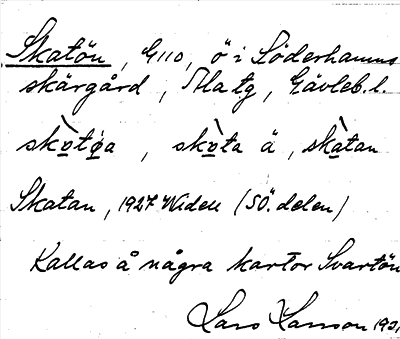 Skatön, G110, ö i Söderhamns
skärgård, Matg, Gävleb. l.
skò̱tø̱a, skò̱ta ä, skà̱tan
Skatan, 1927 Widell (SÖ. delen)
Kallas å några kartor Svartön
Lars Hanson 193